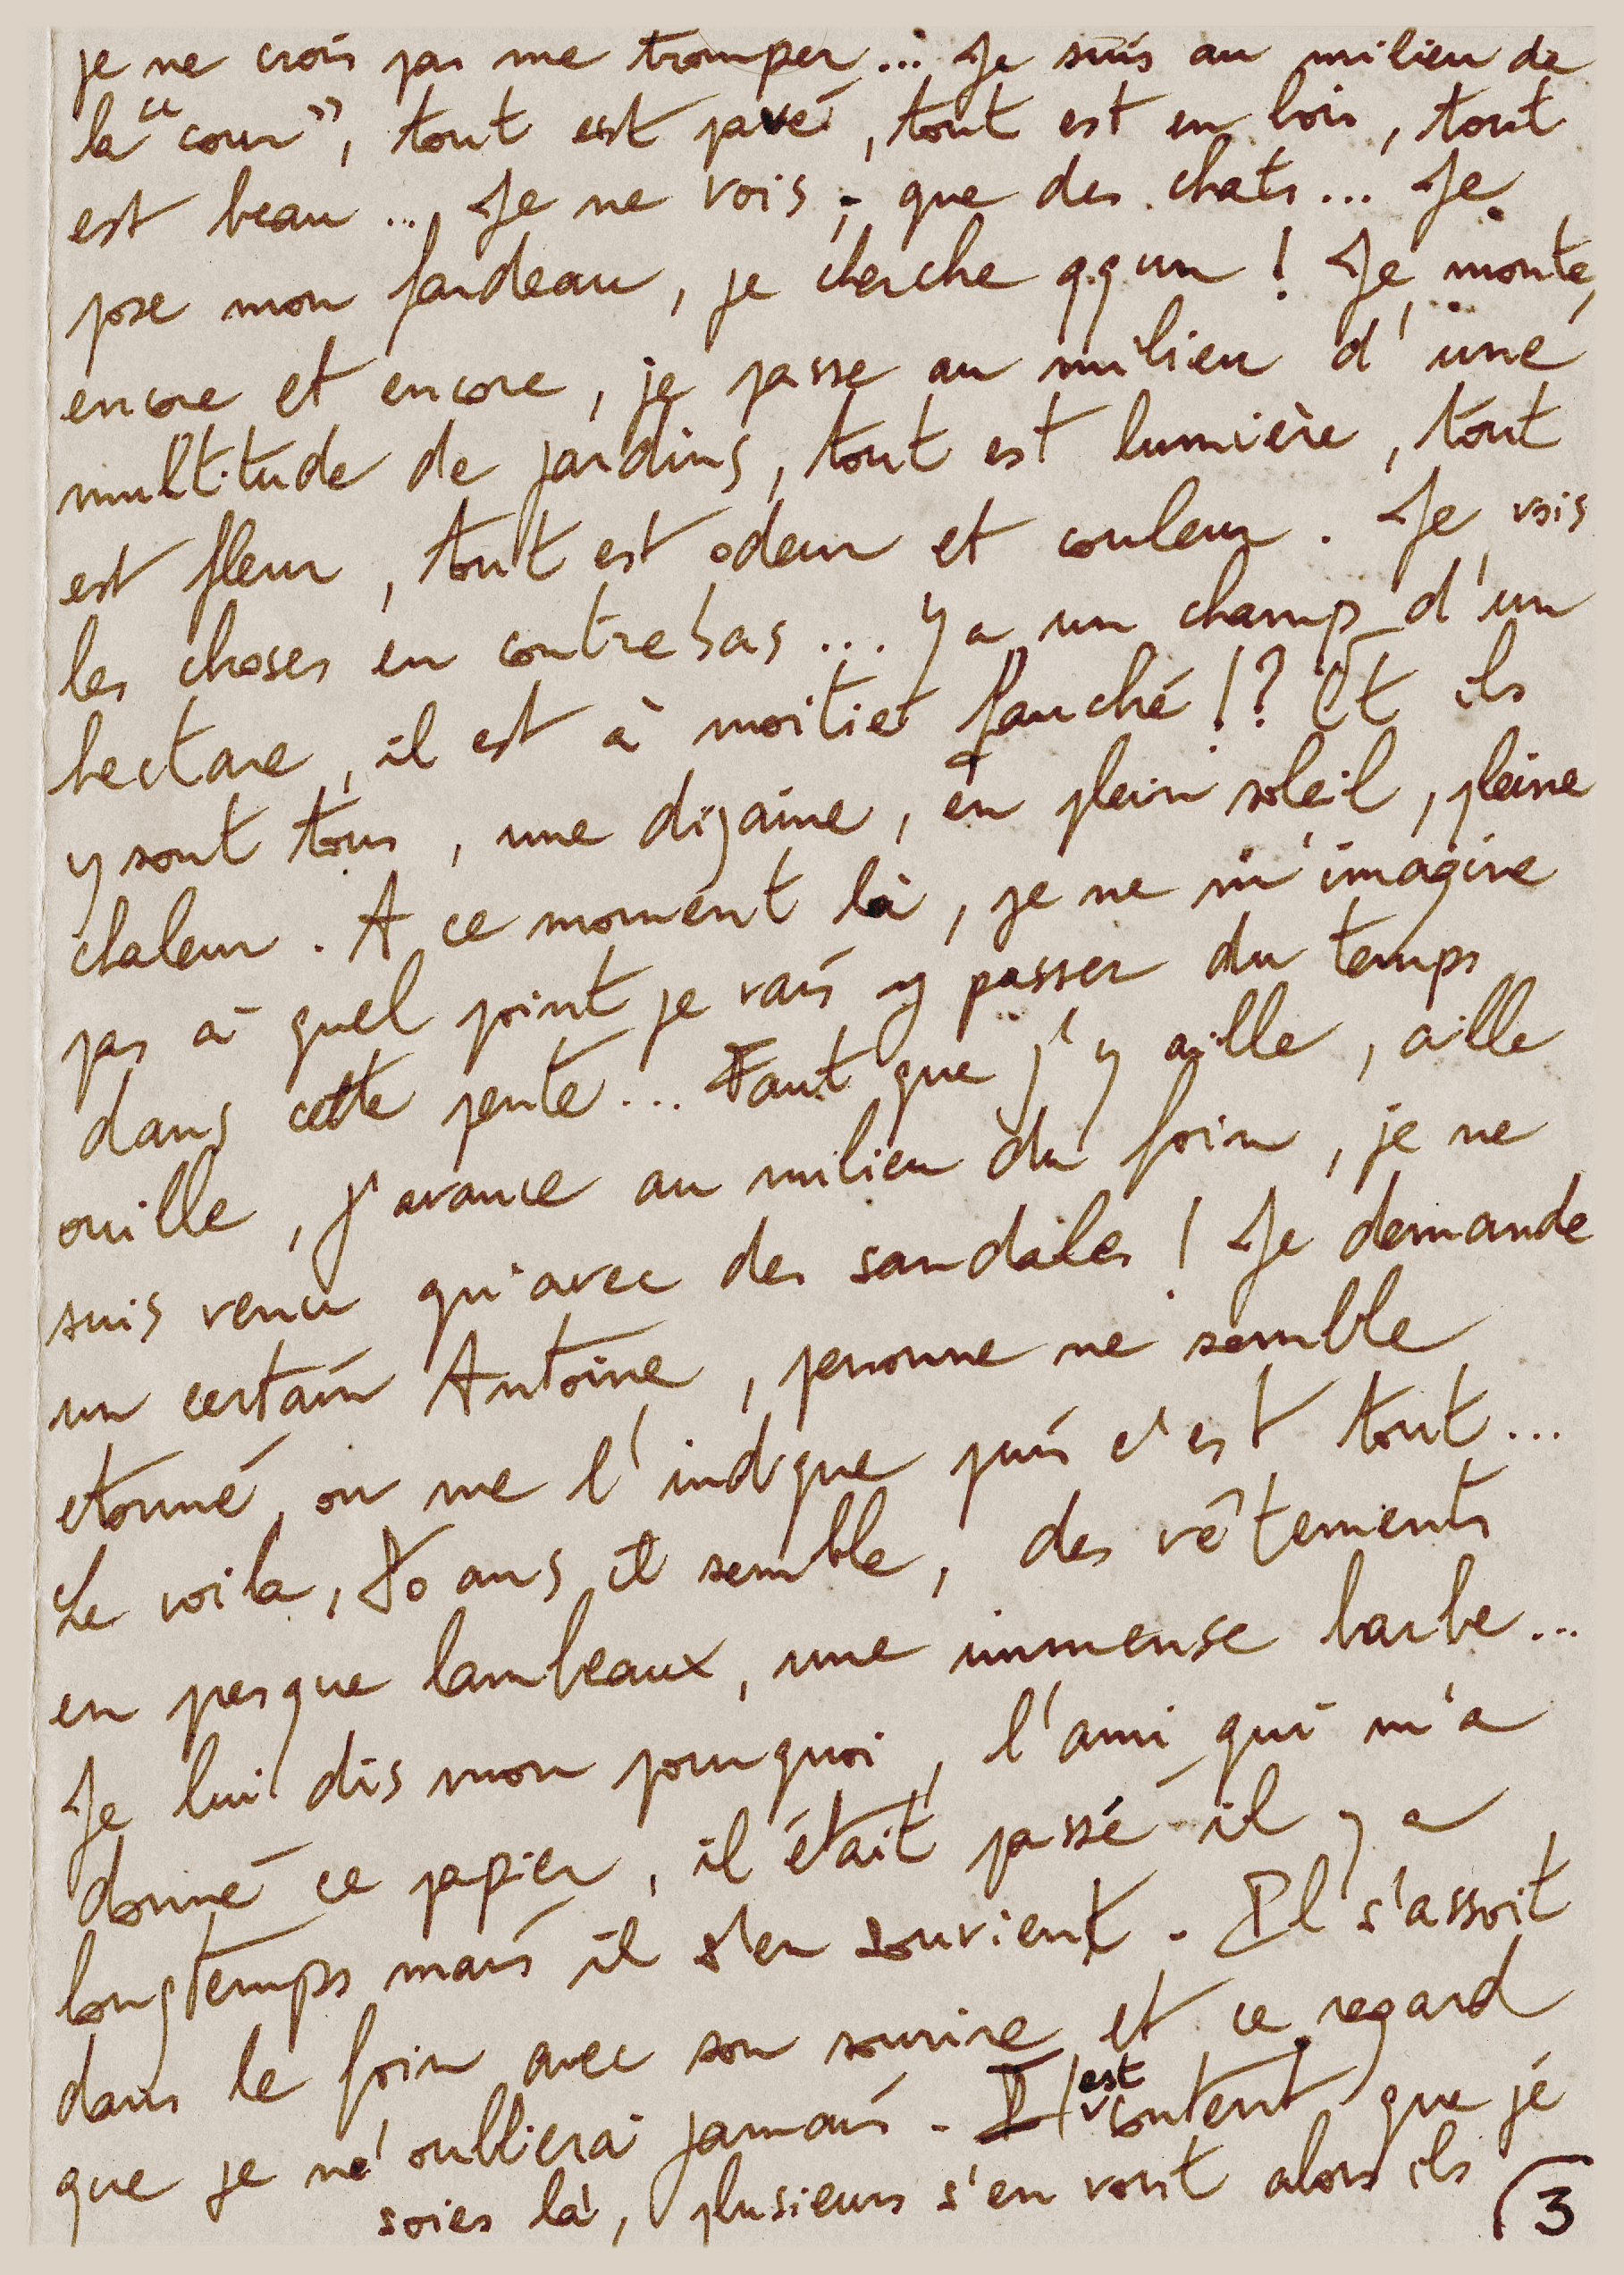 je ne crois pas me tromper... Je suis au milieu de
la "cour", tout est pavé, tout est en bois, tout
est beau... Je ne vois, que des chats... Je
pose mon fardeau, je cherche qqun ! Je monte,
encore et encore, je passe au milieu d'une
multitude de jardins, tout est lumière, tout
est fleur, tout est odeur et couleur. Je vois
les choses en contrebas... Y a un champ d'un
hectare, il est à moitiet fauché !? Et ils
y sont tous, une dizaine, en plein soleil, pleine
chaleur. A ce moment là, je ne m'imagine
pas à quel point je vais y passer du temps
dans cette pente... Faut que j'y aille, aille
ouille, j'avance au milieu du foin, je ne
suis venu qu'avec des sandales ! Je demande
un certain Antoine, personne ne semble
etonné, on me l'indique puis c'est tout...
Le voila, 70 ans il semble, des vêtements
en presque lambeaux, une immense barbe...
Je lui dis mon pourquoi, l'ami qui m'a
donné ce papier, il était passé il y a
longtemps mais il s'en souvient. Il s'assoit
dans le foin avec son sourire et ce regard
que je n'oublierai jamais. Il est content que je
soies là, plusieurs s'en vont alors ils
3